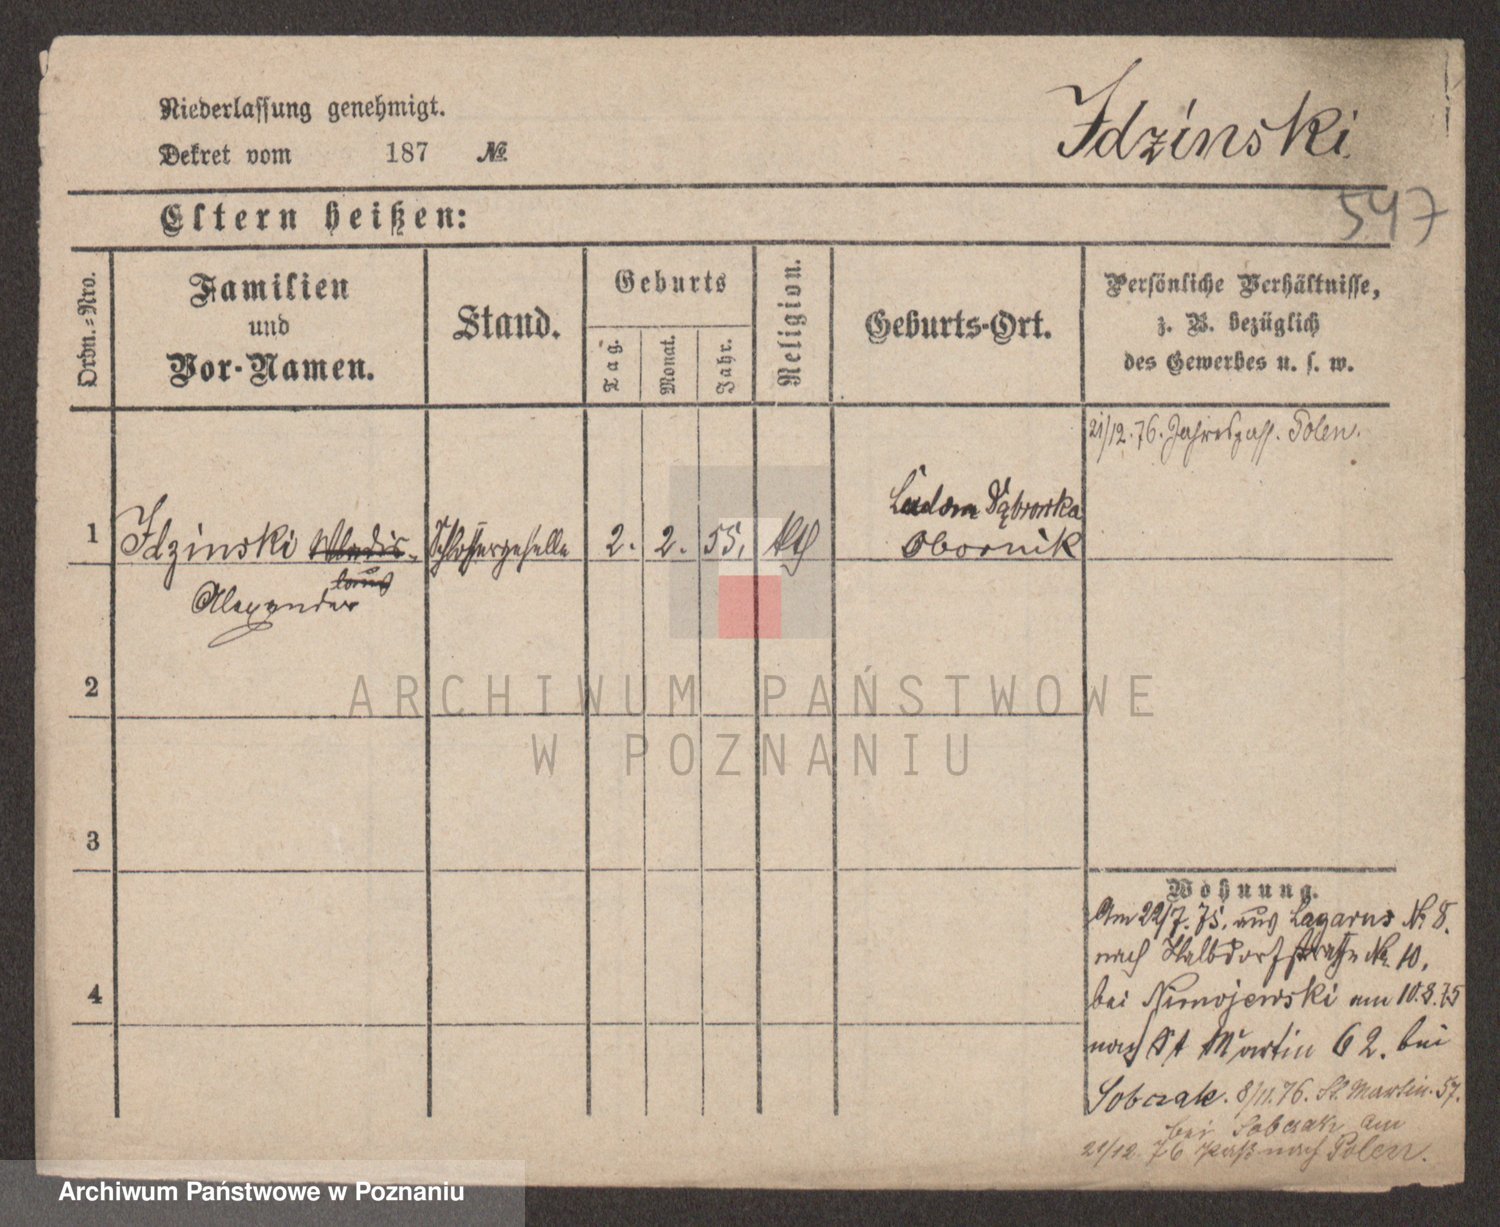 Niederlassung genehmigt.
Dekret vom 187 №
Idzinski
Eltern heißen:
547
Ordn.-Nro.
Familien
und
Vor-Namen.
Stand.
Geburts
Tag.
Monat.
Jahr.
Religion.
Geburts-Ort.
Persönliche Verhältnisse,
z. B. bezüglich
des Gewerbes u. s. w.
21/12. 76. Jahrespass. Polen.
1
Idzinski Wladis-
laus
Alexander
Schlossergeselle
2. 2. 55. kth
Ludom Dąbrowka
Obornik
2
3
4
Wohnung.
Am 22/7. 75. aus Lazarus Nr 8.
nach Halbdorfstraße Nr. 10.
bei Nimojewski am 10.8.75
nach St Martin 62. bei
Sobczak. 8/11.76. St. Martin. 57.
bei Sobczak am
21/12. 76 Paß nach Polen.
ARCHIWUM PAŃSTWOWE
W POZNANIU
Archiwum Państwowe w Poznaniu